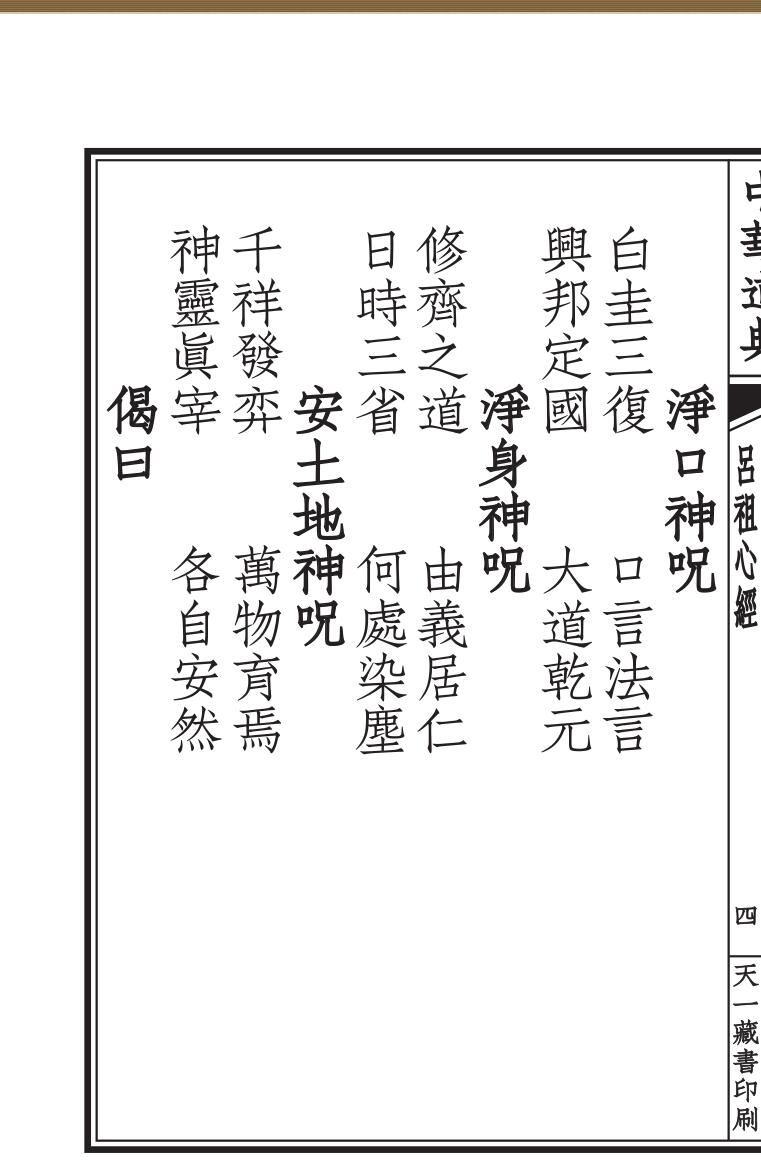 中華道典
呂祖心經
四
天一藏書印刷
淨口神呪
白圭三復　口言法言
興邦定國　大道乾元
淨身神呪
修齊之道　由義居仁
日時三省　何處染塵
安土地神呪
千祥發弈　萬物育焉
神靈眞宰　各自安然
偈曰